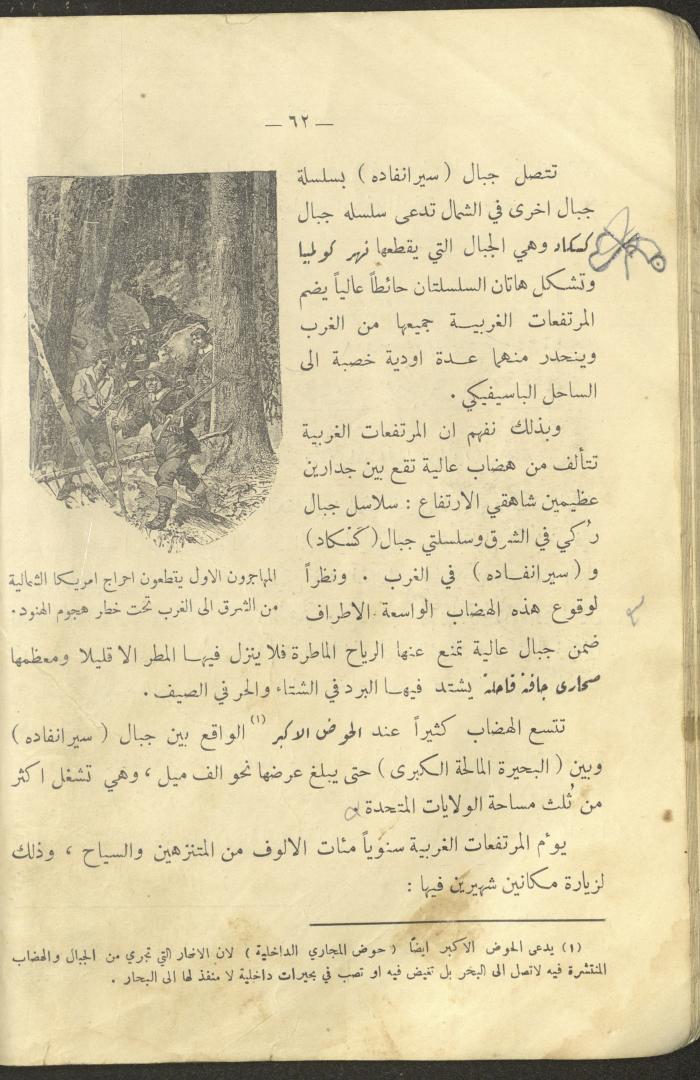 — ٦٢ —
تتصل جبال (سيرانفاده) بسلسلة
جبال اخرى في الشمال تدعى سلسله جبال
كسكاد وهي الجبال التي يقطعها نهر كولمبيا
وتشكل هاتان السلسلتان حائطاً عالياً يضم
المرتفعات الغربية جميعها من الغرب
وينحدر منهما عدة اودية خصبة الى
الساحل الباسيفيكي .
وبذلك نفهم ان المرتفعات الغربية
تتألف من هضاب عالية تقع بين جدارين
عظيمين شاهقي الارتفاع : سلاسل جبال
رُكي في الشرق وسلسلتي جبال (كَسْكاد)
و (سيرانفاده) في الغرب . ونظراً
لوقوع هذه الهضاب الواسعة الاطراف
المهاجرون الاول يقطعون احراج امريكا الشمالية
من الشرق الى الغرب تحت خطر هجوم الهنود.
ضمن جبال عالية تمنع عنها الرياح الماطرة فلا ينزل فيها المطر الا قليلا ومعظمها
صحارى جافة قاحلة يشتد فيها البرد في الشتاء والحر في الصيف .
تتسع الهضاب كثيراً عند الحوض الاكبر (١) الواقع بين جبال (سيرانفاده)
وبين (البحيرة المالحة الكبرى) حتى يبلغ عرضها نحو الف ميل ، وهي تشغل اكثر
من ثُلث مساحة الولايات المتحدة .
يؤم المرتفعات الغربية سنوياً مئات الالوف من المتنزهين والسياح ، وذلك
لزيارة مكانين شهيرين فيها :
(١) يدعى الحوض الاكبر ايضاً (حوض المجاري الداخلية) لان الانهار التي تجري من الجبال والهضاب
المنتشرة فيه لاتصل الى البحر بل تغيض فيه او تصب في بحيرات داخلية لا منفذ لها الى البحار .